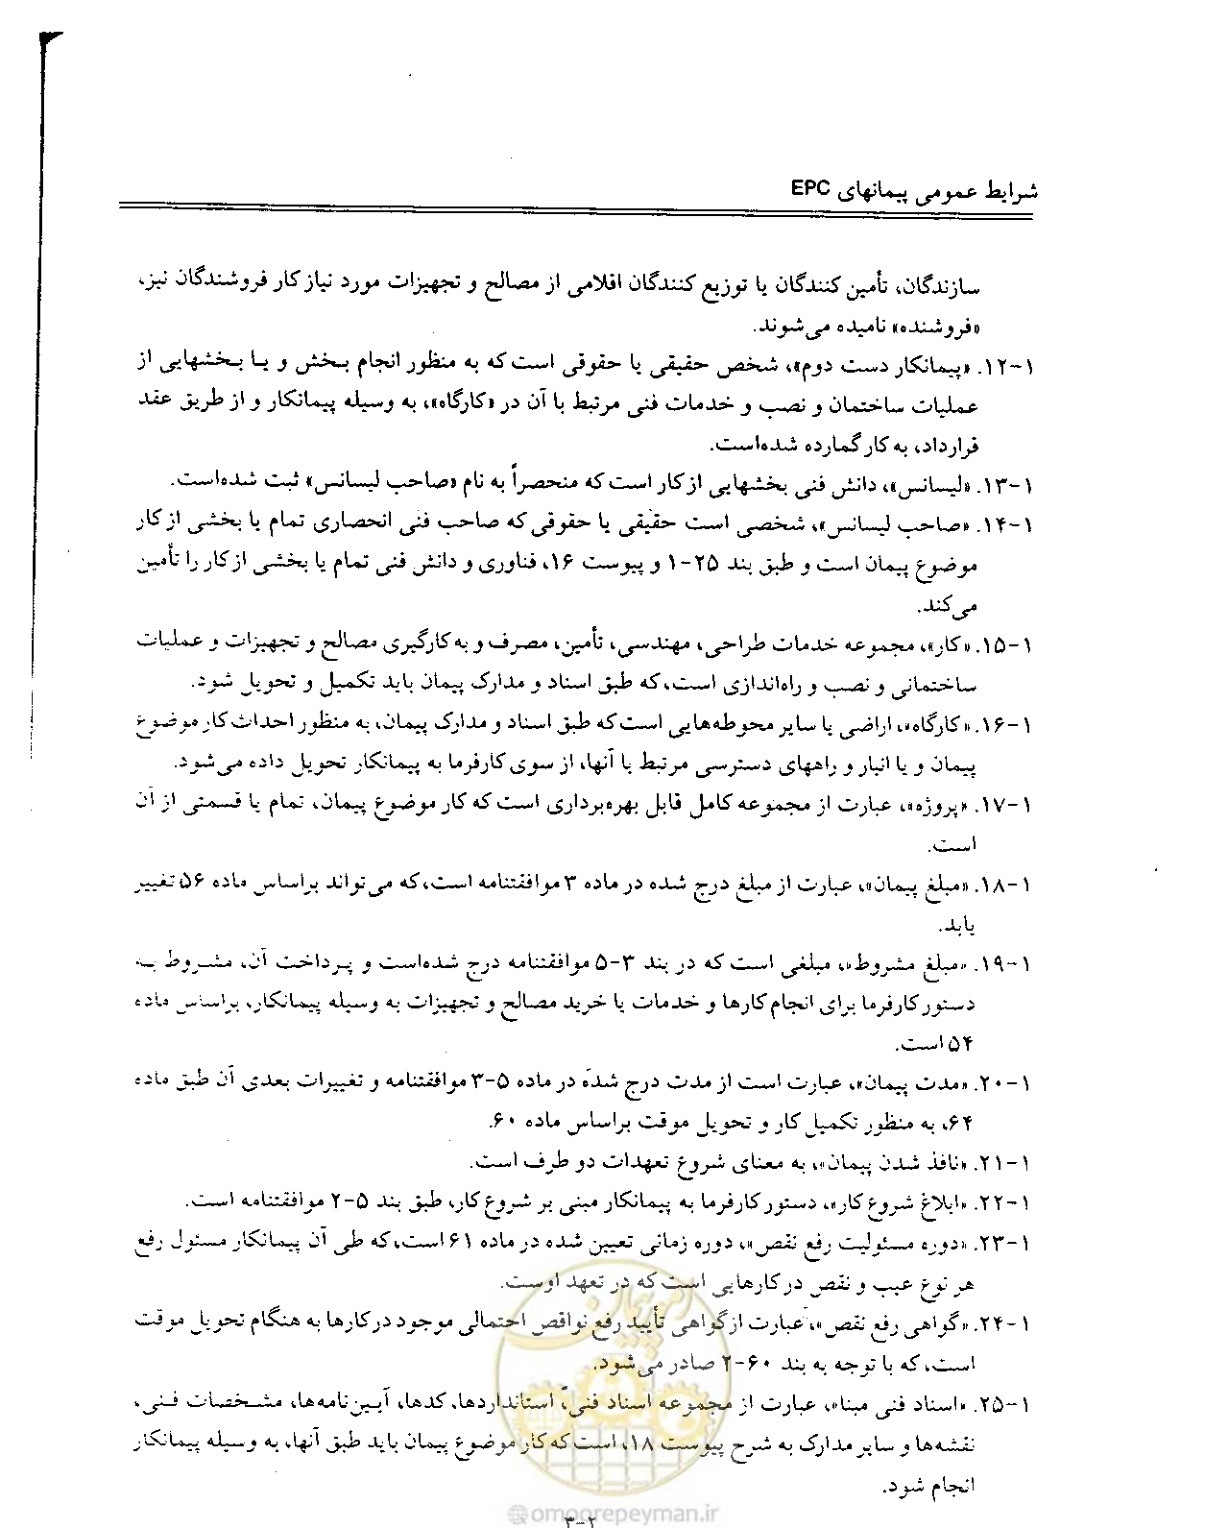 شرایط عمومی پیمانهای EPC
سازندگان، تأمین کنندگان یا توزیع کنندگان اقلامی از مصالح و تجهیزات مورد نیاز کار فروشندگان نیز،
«فروشنده» نامیده می‌شوند.
۱-۱۲. «پیمانکار دست دوم»، شخص حقیقی یا حقوقی است که به منظور انجام بخش و یا بخشهایی از
عملیات ساختمان و نصب و خدمات فنی مرتبط با آن در «کارگاه»، به وسیله پیمانکار و از طریق عقد
قرارداد، به کار گمارده شده‌است.
۱-۱۳. «لیسانس»، دانش فنی بخشهایی از کار است که منحصراً به نام «صاحب لیسانس» ثبت شده‌است.
۱-۱۴. «صاحب لیسانس»، شخصی است حقیقی یا حقوقی که صاحب فنی انحصاری تمام یا بخشی از کار
موضوع پیمان است و طبق بند ۲۵-۱ و پیوست ۱۶، فناوری و دانش فنی تمام یا بخشی از کار را تأمین
می‌کند.
۱-۱۵. «کار»، مجموعه خدمات طراحی، مهندسی، تأمین، مصرف و به‌کارگیری مصالح و تجهیزات و عملیات
ساختمانی و نصب و راه‌اندازی است، که طبق اسناد و مدارک پیمان باید تکمیل و تحویل شود.
۱-۱۶. «کارگاه»، اراضی یا سایر محوطه‌هایی است که طبق اسناد و مدارک پیمان، به منظور احداث کار موضوع
پیمان و یا انبار و راههای دسترسی مرتبط با آنها، از سوی کارفرما به پیمانکار تحویل داده می‌شود.
۱-۱۷. «پروژه»، عبارت از مجموعه کامل قابل بهره‌برداری است که کار موضوع پیمان، تمام یا قسمتی از آن
است.
۱-۱۸. «مبلغ پیمان»، عبارت از مبلغ درج شده در ماده ۳ موافقتنامه است، که می‌تواند براساس ماده ۵۶ تغییر
یابد.
۱-۱۹. «مبلغ مشروط»، مبلغی است که در بند ۳-۵ موافقتنامه درج شده‌است و پرداخت آن، مشروط به
دستور کارفرما برای انجام کارها و خدمات یا خرید مصالح و تجهیزات به وسیله پیمانکار، براساس ماده
۵۴ است.
۱-۲۰. «مدت پیمان»، عبارت است از مدت درج شده در ماده ۵-۳ موافقتنامه و تغییرات بعدی آن طبق ماده
۶۴، به منظور تکمیل کار و تحویل موقت براساس ماده ۶۰.
۱-۲۱. «نافذ شدن پیمان»، به معنای شروع تعهدات دو طرف است.
۱-۲۲. «ابلاغ شروع کار»، دستور کارفرما به پیمانکار مبنی بر شروع کار، طبق بند ۵-۲ موافقتنامه است.
۱-۲۳. «دوره مسئولیت رفع نقص»، دوره زمانی تعیین شده در ماده ۶۱ است، که طی آن پیمانکار مسئول رفع
هر نوع عیب و نقص در کارهایی است که در تعهد اوست.
۱-۲۴. «گواهی رفع نقص»، عبارت از گواهی تأیید رفع نواقص احتمالی موجود در کارها به هنگام تحویل موقت
است، که با توجه به بند ۶۰-۲ صادر می‌شود.
۱-۲۵. «اسناد فنی مبنا»، عبارت از مجموعه اسناد فنی، استانداردها، کدها، آیین‌نامه‌ها، مشخصات فنی،
نقشه‌ها و سایر مدارک به شرح پیوست ۱۸، است که کار موضوع پیمان باید طبق آنها، به وسیله پیمانکار
انجام شود.
امور پیمان
@omoorepeyman.ir
۳-۲